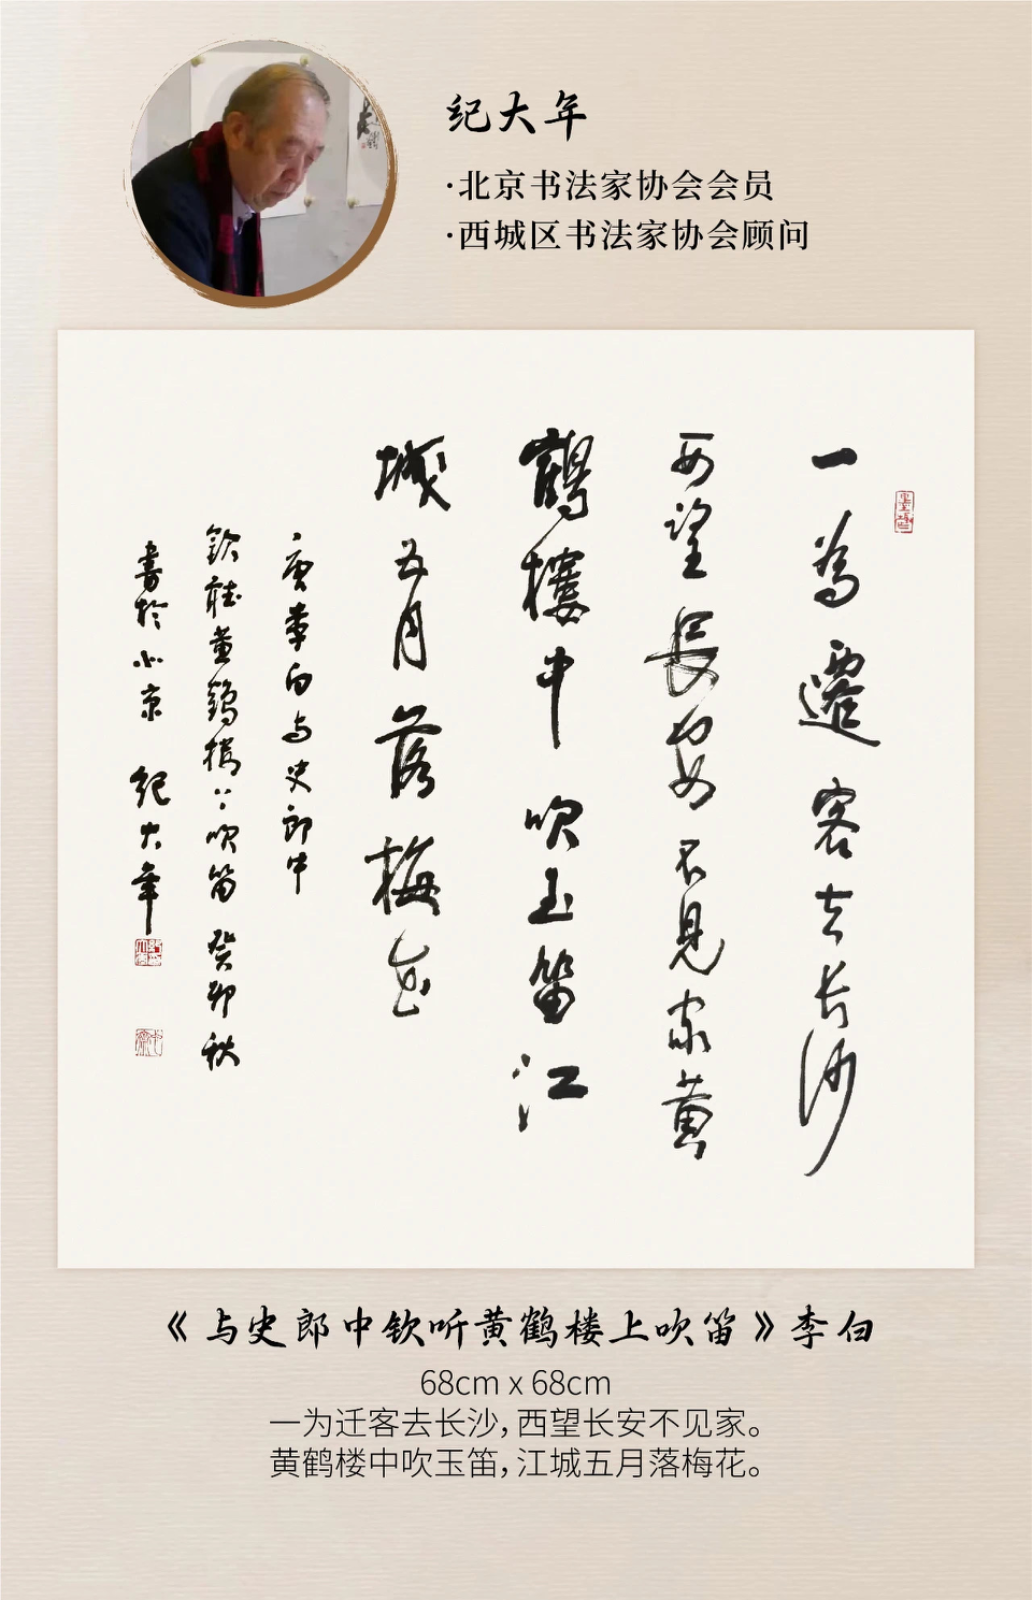 纪大年
·北京书法家协会会员
·西城区书法家协会顾问
一为遷客去长沙
西望長安不见家黄
鶴樓中吹玉笛江
城五月落梅花
唐李白与史郎中
钦聽黄鹤楼上吹笛 癸卯秋
書於北京 纪大年
《与史郎中钦听黄鹤楼上吹笛》李白
68cm x 68cm
一为迁客去长沙，西望长安不见家。
黄鹤楼中吹玉笛，江城五月落梅花。